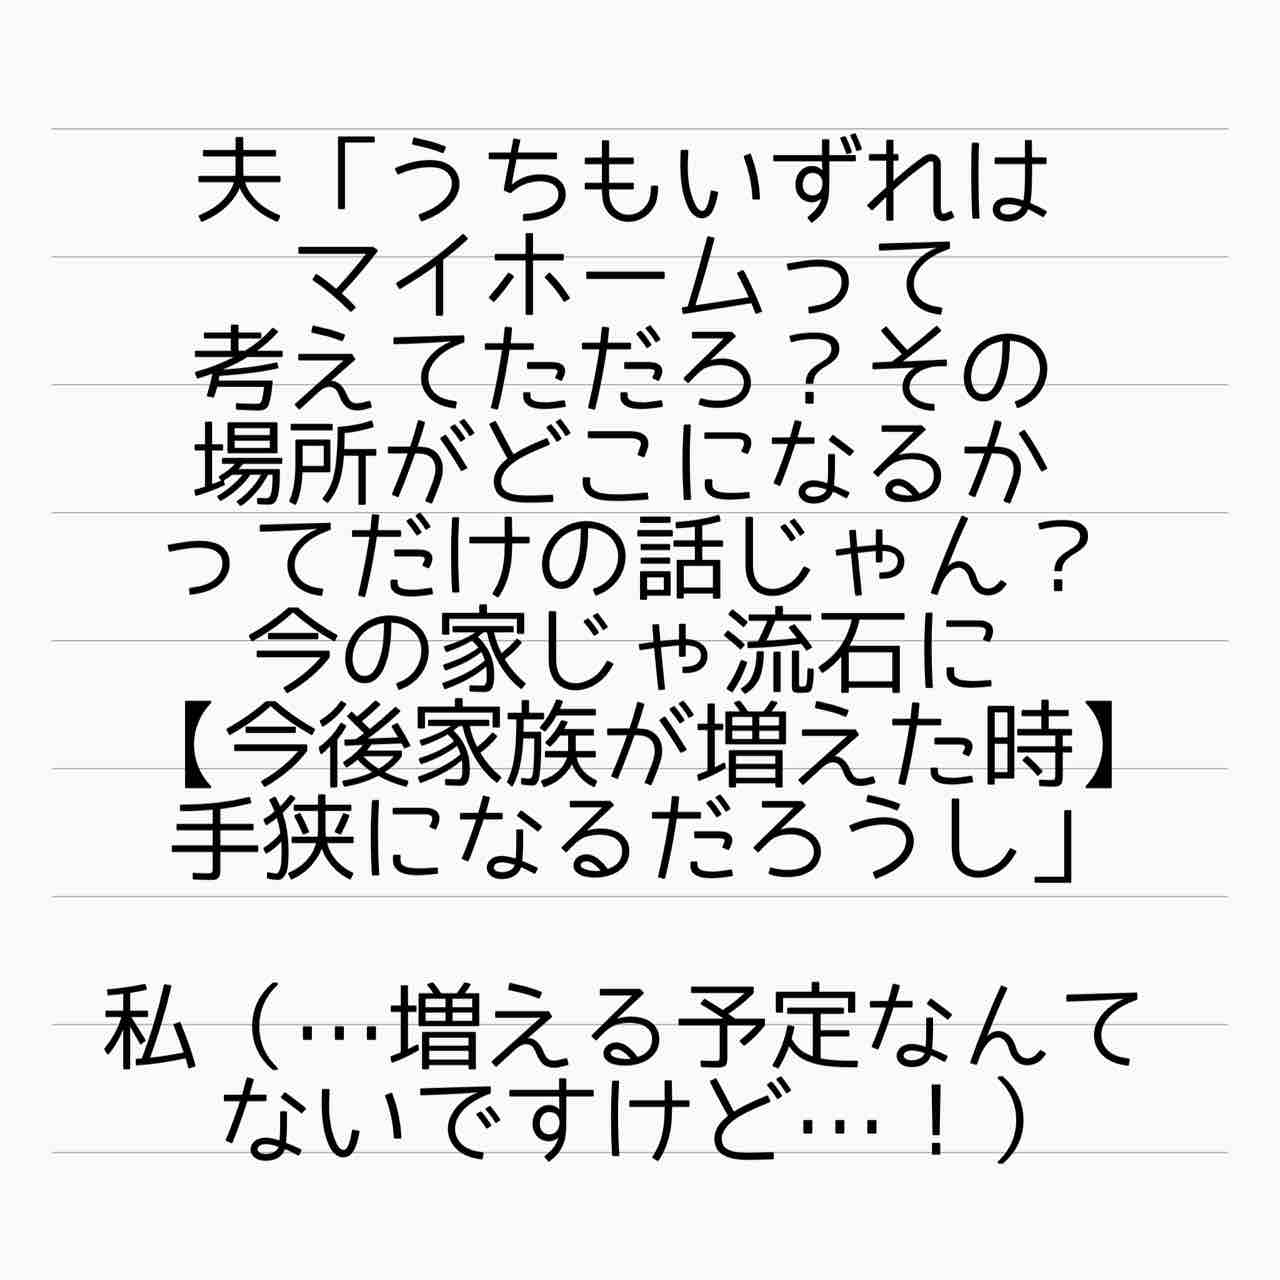 夫「うちもいずれは
マイホームって
考えてただろ？その
場所がどこになるか
ってだけの話じゃん？
今の家じゃ流石に
【今後家族が増えた時】
手狭になるだろうし」
私（…増える予定なんて
ないですけど…！）